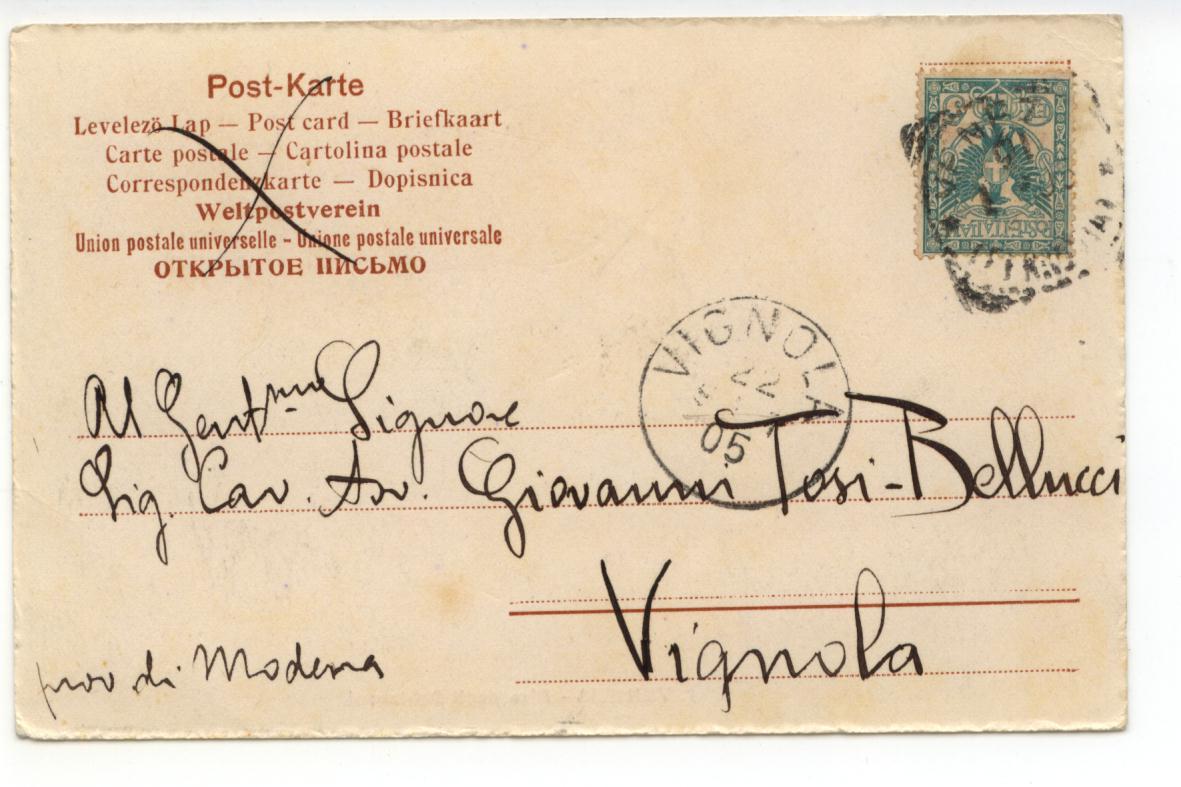 Post-Karte
Levelezö Lap — Post card — Briefkaart
Carte postale — Cartolina postale
Correspondenzkarte — Dopisnica
Weltpostverein
Union postale universelle - Unione postale universale
ОТКРЫТОЕ ПИСЬМО
POSTE ITALIANE
VIGNOLA
22
05
Al Gent.mo Signore
Sig. Cav. Avv. Giovanni Tosi-Bellucci
Vignola
prov di Modena